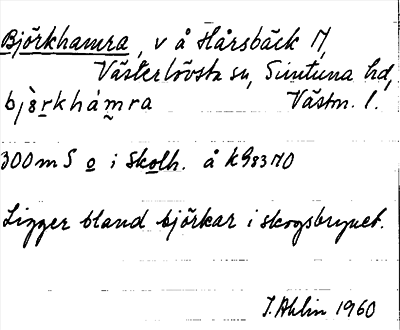 Björkhamra, v å Hårsbäck M,
Västerlövsta sn, Simtuna hd,
bjö̀rkhám̰ra Västm. l.
300 m S o i Skolh. å k983 MO
Ligger bland björkar i skogsbrynet.
J. Ahlin 1960